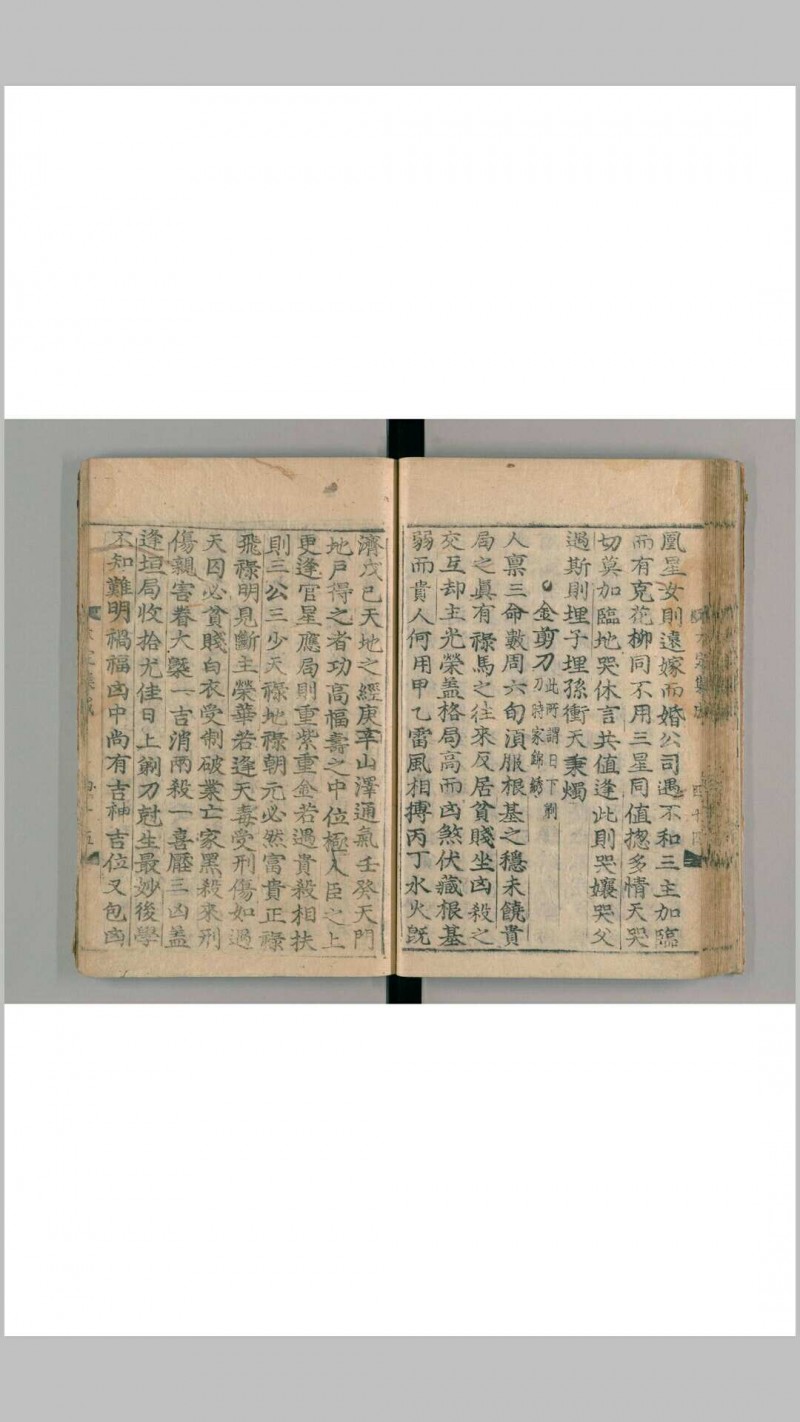 凰星汝則遠嫁而婚公司遇不和三主加臨
而有克花柳同不用三星同值揔多情天哭
切莫加臨地哭休言共值逢此則哭孃哭父
過斯則埋子埋孫衝天秉燭
金剪刀此所謂日下剪
刀詩家錦綉
人禀三命數周六旬湏服根基之穩未饒貴
局之眞有祿馬之往來反居貧賤坐凶殺之
交互却主光榮盖格局高而凶煞伏藏根基
弱而貴人何用甲乙雷風相搏丙丁水火旣
濟戊己天地之經庚辛山澤通氣壬癸天門
地戶得之者功高福壽之中位極人臣之上
更逢官星應局則重紫重金若遇貴殺相扶
則三公三少天祿地祿朝元必然富貴正祿
飛祿明見斷主榮華若逢天毒受刑傷如過
天囚必貧賤白衣受制破業亡家黑殺來刑
傷親害眷大槩一吉消兩殺一喜壓三凶盖
逢垣局收拾尤佳日上剪刀尅生最妙後學
不知難明禍福凶中尚有吉神吉位又包凶